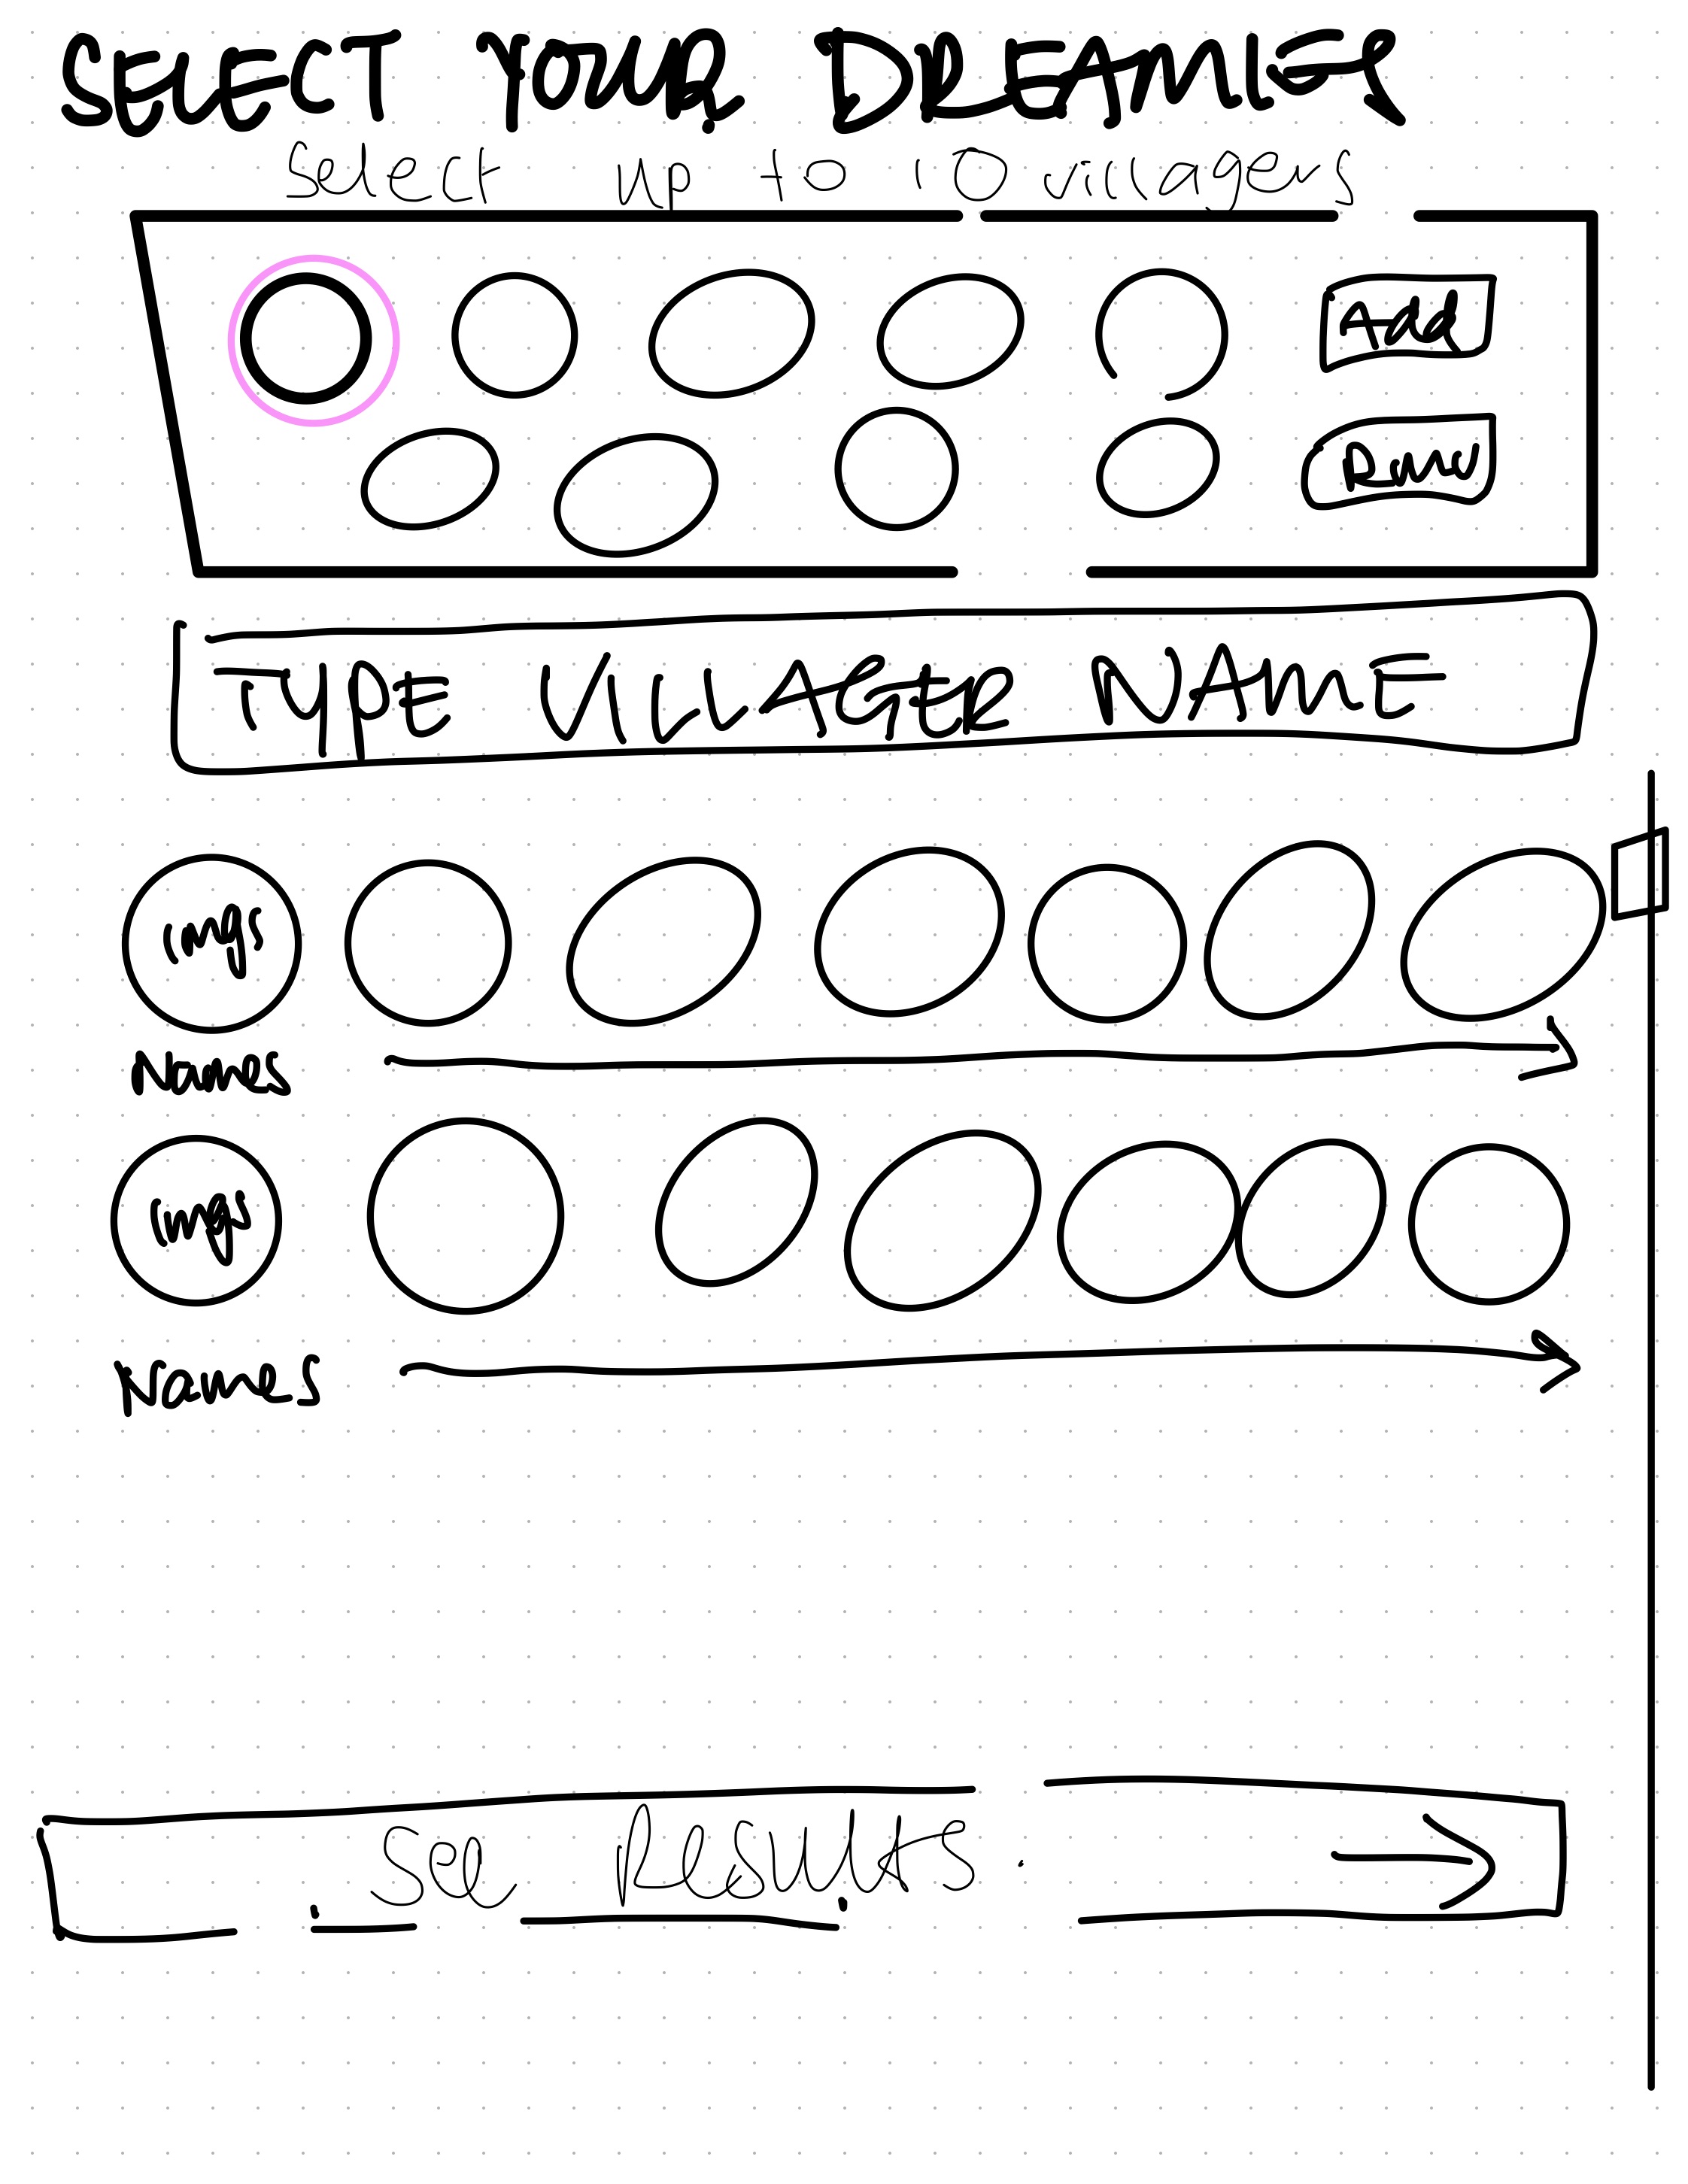 SELECT YOUR DREAMIES
Select up to 10 villagers
Add
TYPE VILLAGER NAME
imgs
Names
imgs
Names
See Results.